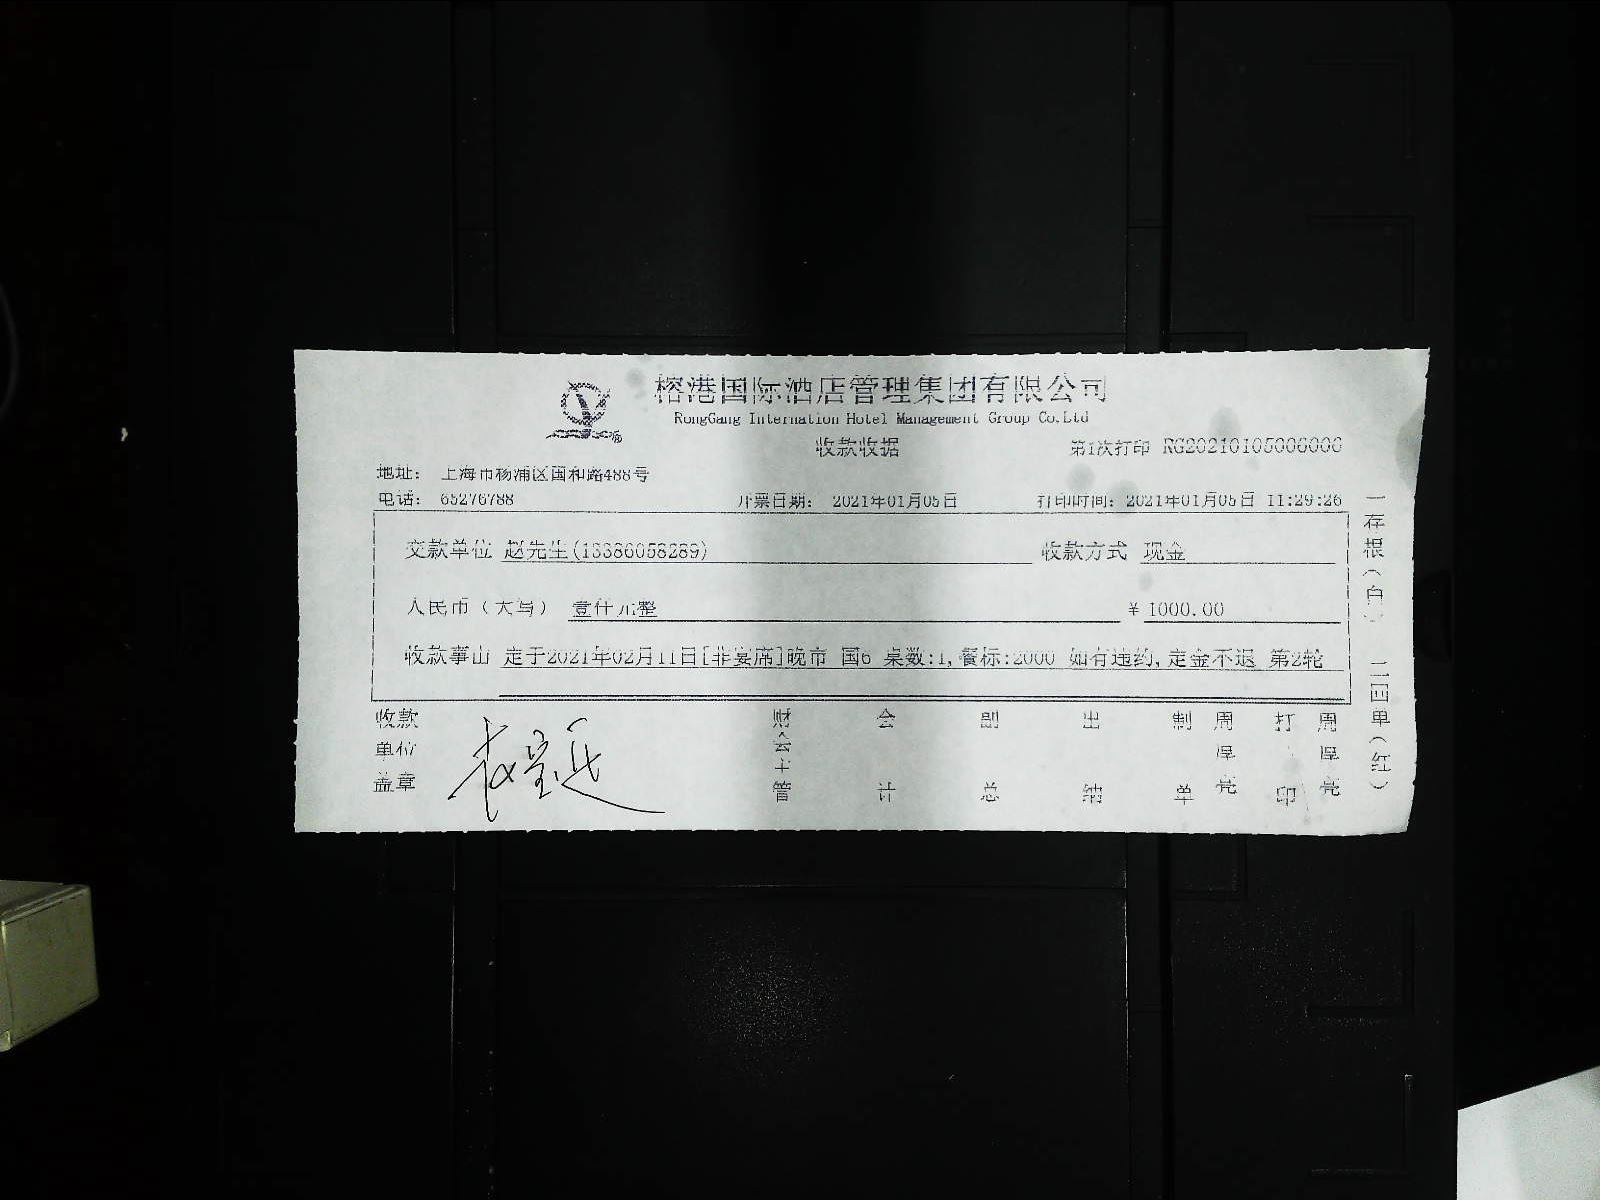 榕港国际酒店管理集团有限公司
RongGang Internation Hotel Management Group Co.Ltd
收款收据
第1次打印 RG20210105006000
地址： 上海市杨浦区国和路488号
电话： 65276788 开票日期： 2021年01月05日 打印时间：2021年01月05日 11:29:26
交款单位 赵先生(13386058289) 收款方式 现金
人民币（大写） 壹仟元整 ¥ 1000.00
收款事由 定于2021年02月11日[非宴席]晚市 国6 桌数:1,餐标:2000 如有违约,定金不退 第2轮
收款单位盖章
财会主管 会计 副总 出纳 制单 周厚亮 打印 周厚亮
一存根（白） 二回单（红）